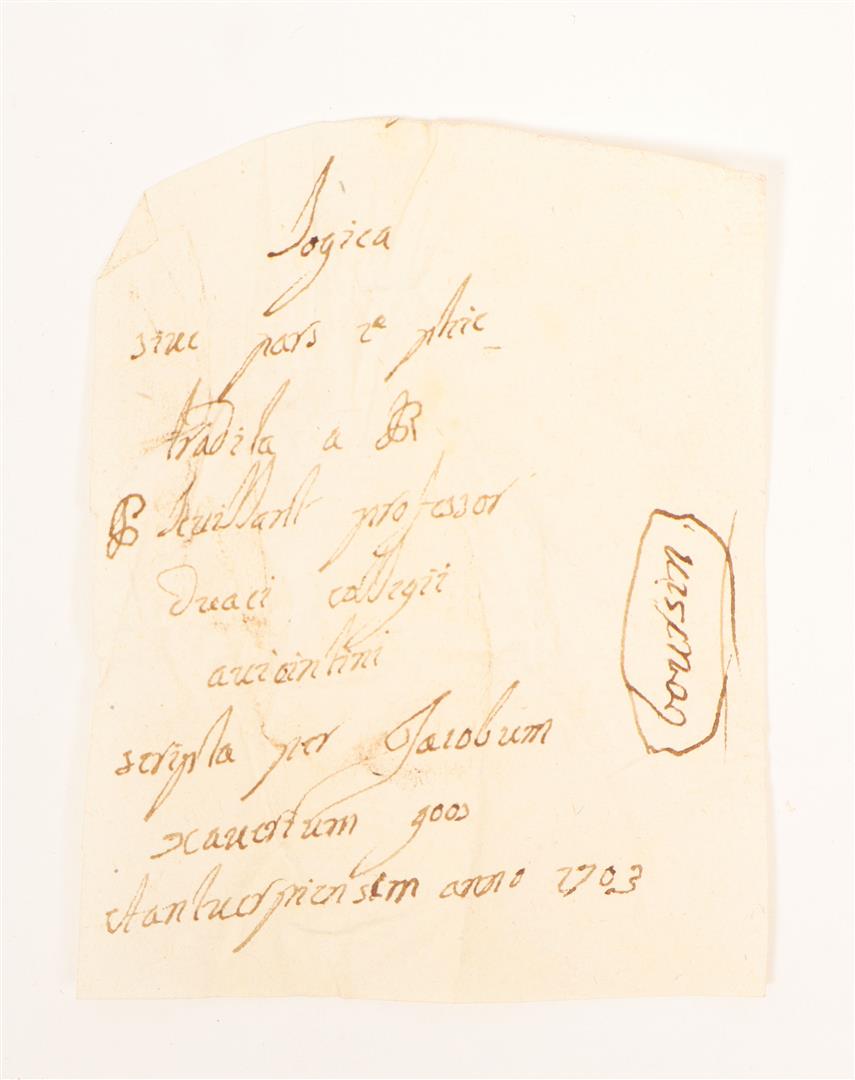 Logica
sive pars 1a phie
tradita a R
P Leuillart professor
duaci collegii
avicintini
scripta per Jacobum
xaverium goos
Aantuerpiensem anno 1703
boursin